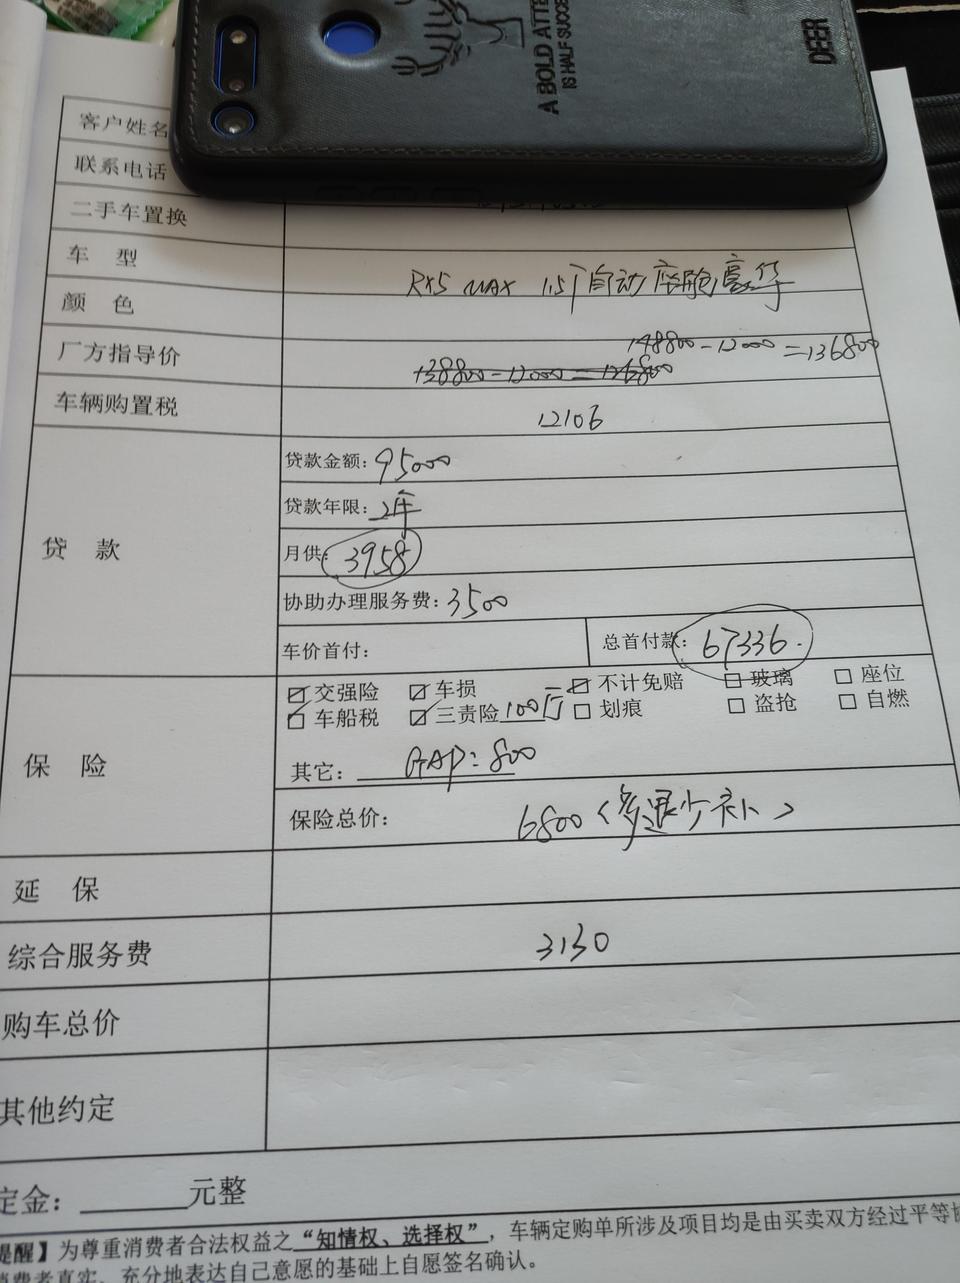 A BOLD ATTE
IS HALF SUCCE
DEER
客户姓名
联系电话
二手车置换
车 型 RX5 MAX 1.5T自动 座舱豪华
颜 色
厂方指导价 148800-12000=136800
138800-12000=126800
车辆购置税 12106
贷 款
贷款金额：95000
贷款年限：2年
月供：3958
协助办理服务费：3500
车价首付： 总首付款：67336.
保 险
☑交强险 ☑车损 ☑不计免赔 □玻璃 □座位
☑车船税 ☑三责险100万 □划痕 □盗抢 □自燃
其它：GAP：800
保险总价： 6800（多退少补）
延 保
综合服务费 3130
购车总价
其他约定
定金：______元整
提醒】为尊重消费者合法权益之“知情权、选择权”，车辆定购单所涉及项目均是由买卖双方经过平等协
消费者真实、充分地表达自己意愿的基础上自愿签名确认。